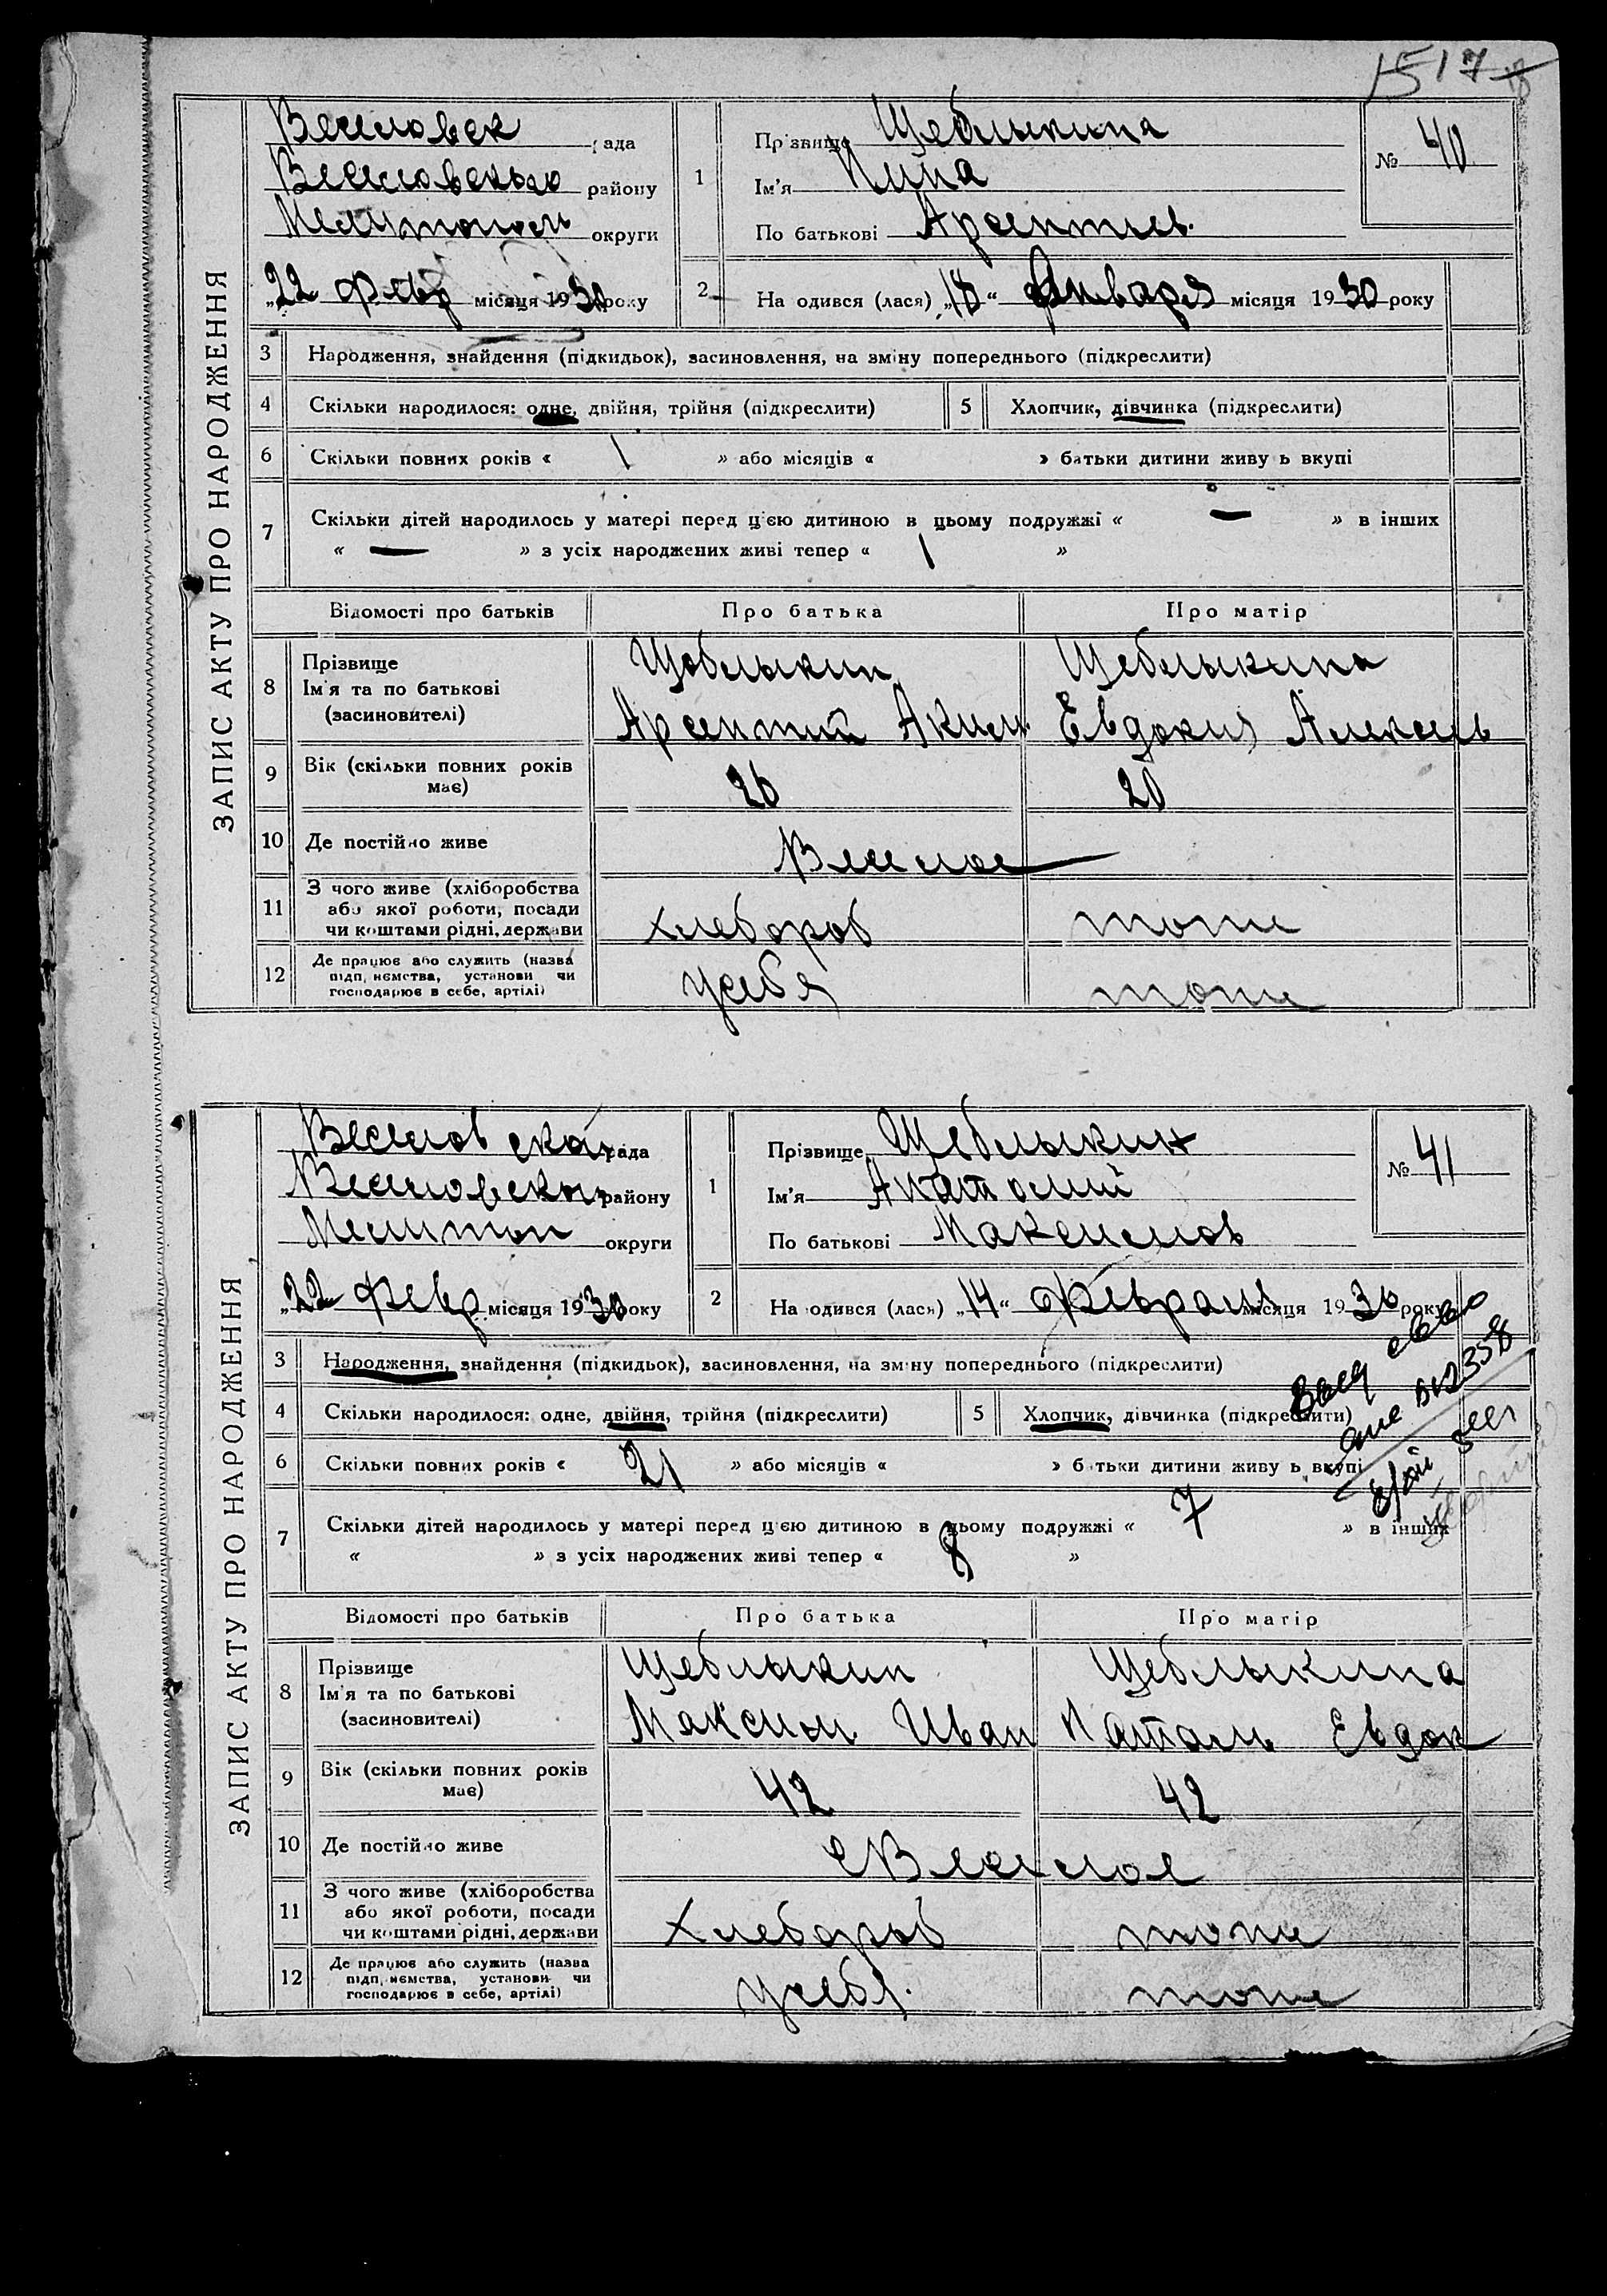 1517
ЗАПИС АКТУ ПРО НАРОДЖЕННЯ
Веселовск рада
Веселовського району
Мелитополь округи
„22 февр місяця 1930 року
1 Прізвище Щеблыкина
Ім'я Нина
По батькові Арсентьев.
№ 40
2 На одився (лася) „18“ Января місяця 1930 року
3 Народження, знайдення (підкидьок), засиновлення, на зміну попереднього (підкреслити)
4 Скільки народилося: одне, двійня, трійня (підкреслити) 5 Хлопчик, дівчинка (підкреслити)
6 Скільки повних років « 1 » або місяців « » батьки дитини живу ь вкупі
7 Скільки дітей народилось у матері перед цією дитиною в цьому подружжі « — » в інших
« — » з усіх народжених живі тепер « 1 »
Відомості про батьків Про батька Про матір
8 Прізвище Ім'я та по батькові (засиновителі)
Щеблыкин Щеблыкина
Арсентий Аким. Евдокия Алексеев
9 Вік (скільки повних років має) 26 20
10 Де постійно живе Веселое
11 З чого живе (хліборобства або якої роботи, посади чи коштами рідні, держави хлебороб тоже
12 Де працює або служить (назва підп, иємства, установи чи господарює в себе, артілі) у себя тоже
ЗАПИС АКТУ ПРО НАРОДЖЕННЯ
Веселовская рада
Веселовськ району
Мелитоп округи
„22 февр місяця 1930 року
1 Прізвище Щеблыкин
Ім'я Анатолий
По батькові Максимов
№ 41
2 На одився (лася) „14“ Февраля місяця 1930 року
3 Народження, знайдення (підкидьок), засиновлення, на зміну попереднього (підкреслити)
4 Скільки народилося: одне, двійня, трійня (підкреслити) 5 Хлопчик, дівчинка (підкреслити)
6 Скільки повних років « 21 » або місяців « » батьки дитини живу ь вкупі
7 Скільки дітей народилось у матері перед цією дитиною в цьому подружжі « 7 » в інших
« » з усіх народжених живі тепер « 8 »
Відомості про батьків Про батька Про матір
8 Прізвище Ім'я та по батькові (засиновителі)
Щеблыкин Щеблыкина
Максим Иван Наталь Евдок
9 Вік (скільки повних років має) 42 42
10 Де постійно живе с Веселое
11 З чого живе (хліборобства або якої роботи, посади чи коштами рідні, держави Хлебороб тоже
12 Де працює або служить (назва підп, иємства, установи чи господарює в себе, артілі) у себя. тоже